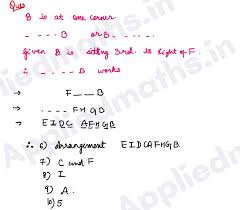 Ques
B is at one corner.
_ _ _ _ B or B _ _ _ _ .
given B is sitting 3rd to Right of F.
∴ _ _ _ _ _ B works
→ F _ _ B
→ _ _ _ _ F H G B
→ E I D C A F H G B
∴ 6) Arrangement E I D C A F H G B.
7) C and F
8) I
9) A.
10) 5
Appliedmaths.in